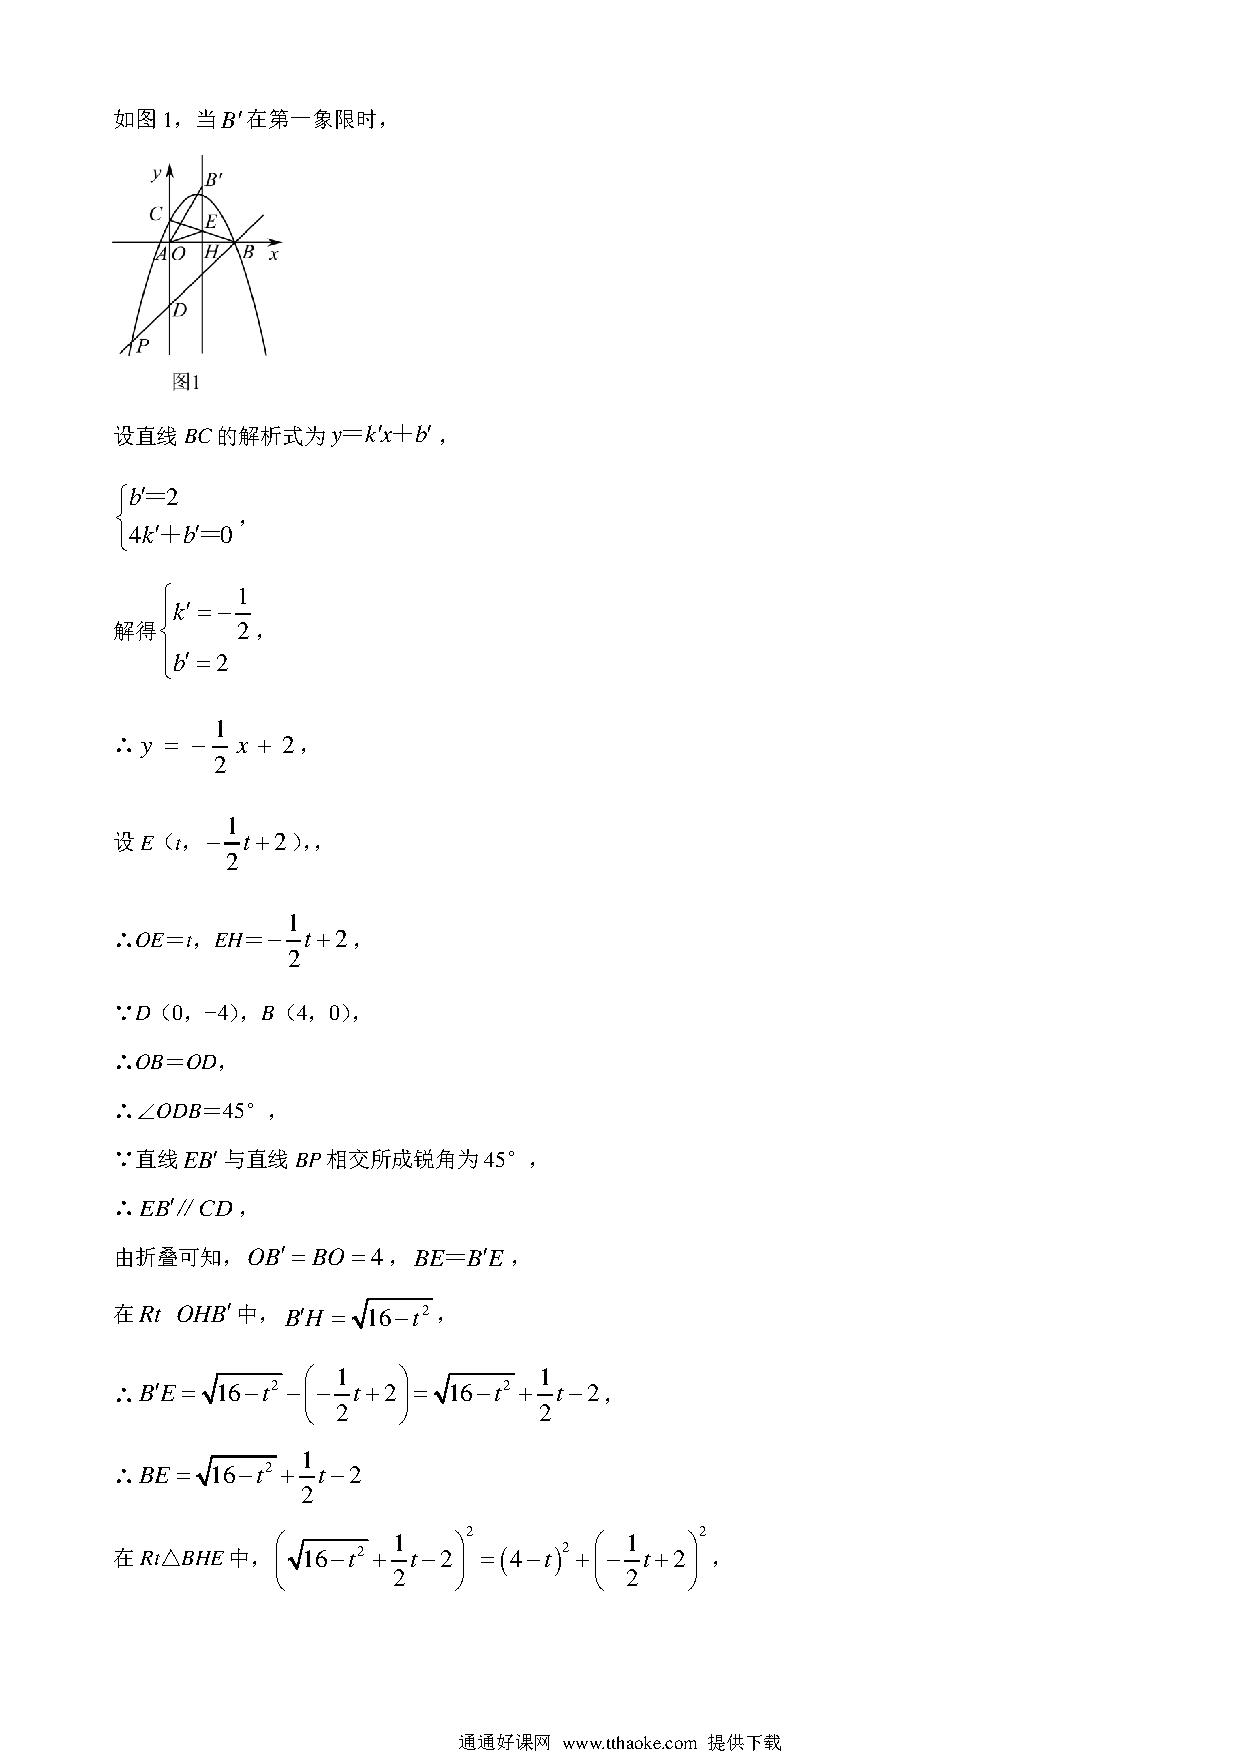 如图1，当B′在第一象限时，
y
B′
C
E
A O H B x
D
P
图1
设直线BC的解析式为y＝k′x＋b′，
{b′＝2
4k′＋b′＝0，
解得{k′＝−1/2
b′＝2，
∴y＝−1/2 x＋2，
设E（t，−1/2 t＋2），，
∴OE＝t，EH＝−1/2 t＋2，
∵D（0，−4），B（4，0），
∴OB＝OD，
∴∠ODB＝45°，
∵直线EB′与直线BP相交所成锐角为45°，
∴EB′∥CD，
由折叠可知，OB′＝BO＝4，BE＝B′E，
在Rt OHB′中，B′H＝√(16−t²)，
∴B′E＝√(16−t²)−(−1/2 t＋2)＝√(16−t²)＋1/2 t−2，
∴BE＝√(16−t²)＋1/2 t−2
在Rt△BHE中，(√(16−t²)＋1/2 t−2)²＝(4−t)²＋(−1/2 t＋2)²，
通通好课网 www.tthaoke.com 提供下载